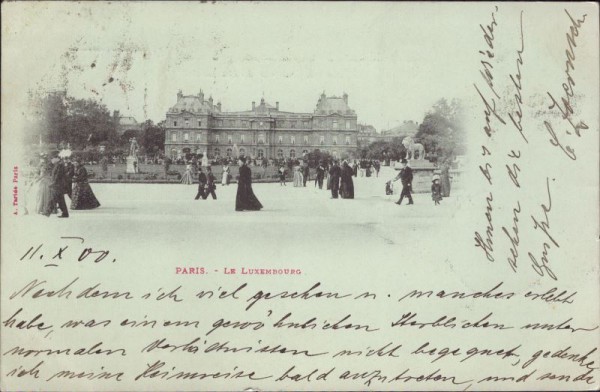 A. Taride Paris
11. X 00.
PARIS. - LE LUXEMBOURG
Nachdem ich viel gesehen u. manches erlebt
habe, was einem gewöhnlichen Sterblichen unter
normalen Verhältnissen nicht begegnet, gedenke
ich meine Heimreise bald anzutreten, und sende
Ihnen bis auf Wieder-
sehen die besten
Grüße.